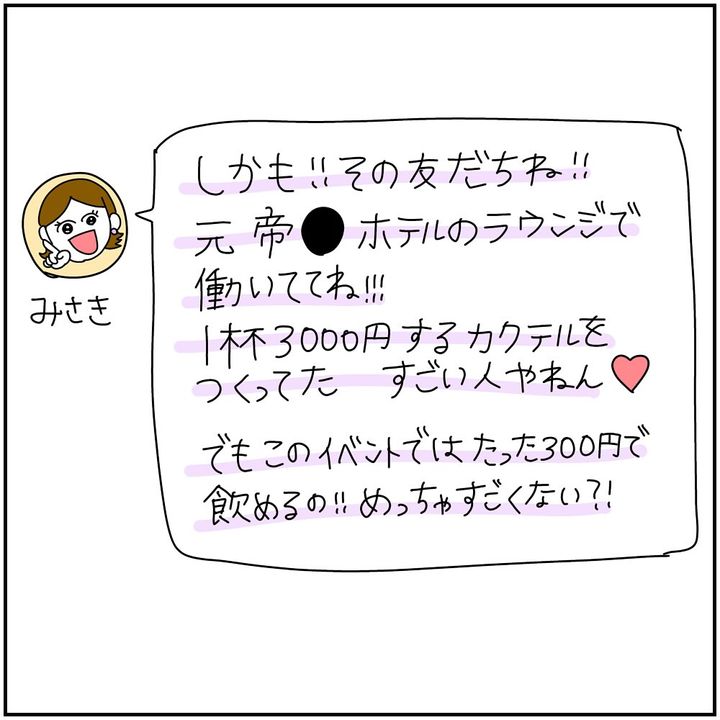 しかも!!その友だちね!!
元帝●ホテルのラウンジで
働いててね!!!
1杯3000円するカクテルを
つくってた すごい人やねん♥
でもこのイベントではたった300円で
飲めるの!!めっちゃすごくない?!
みさき